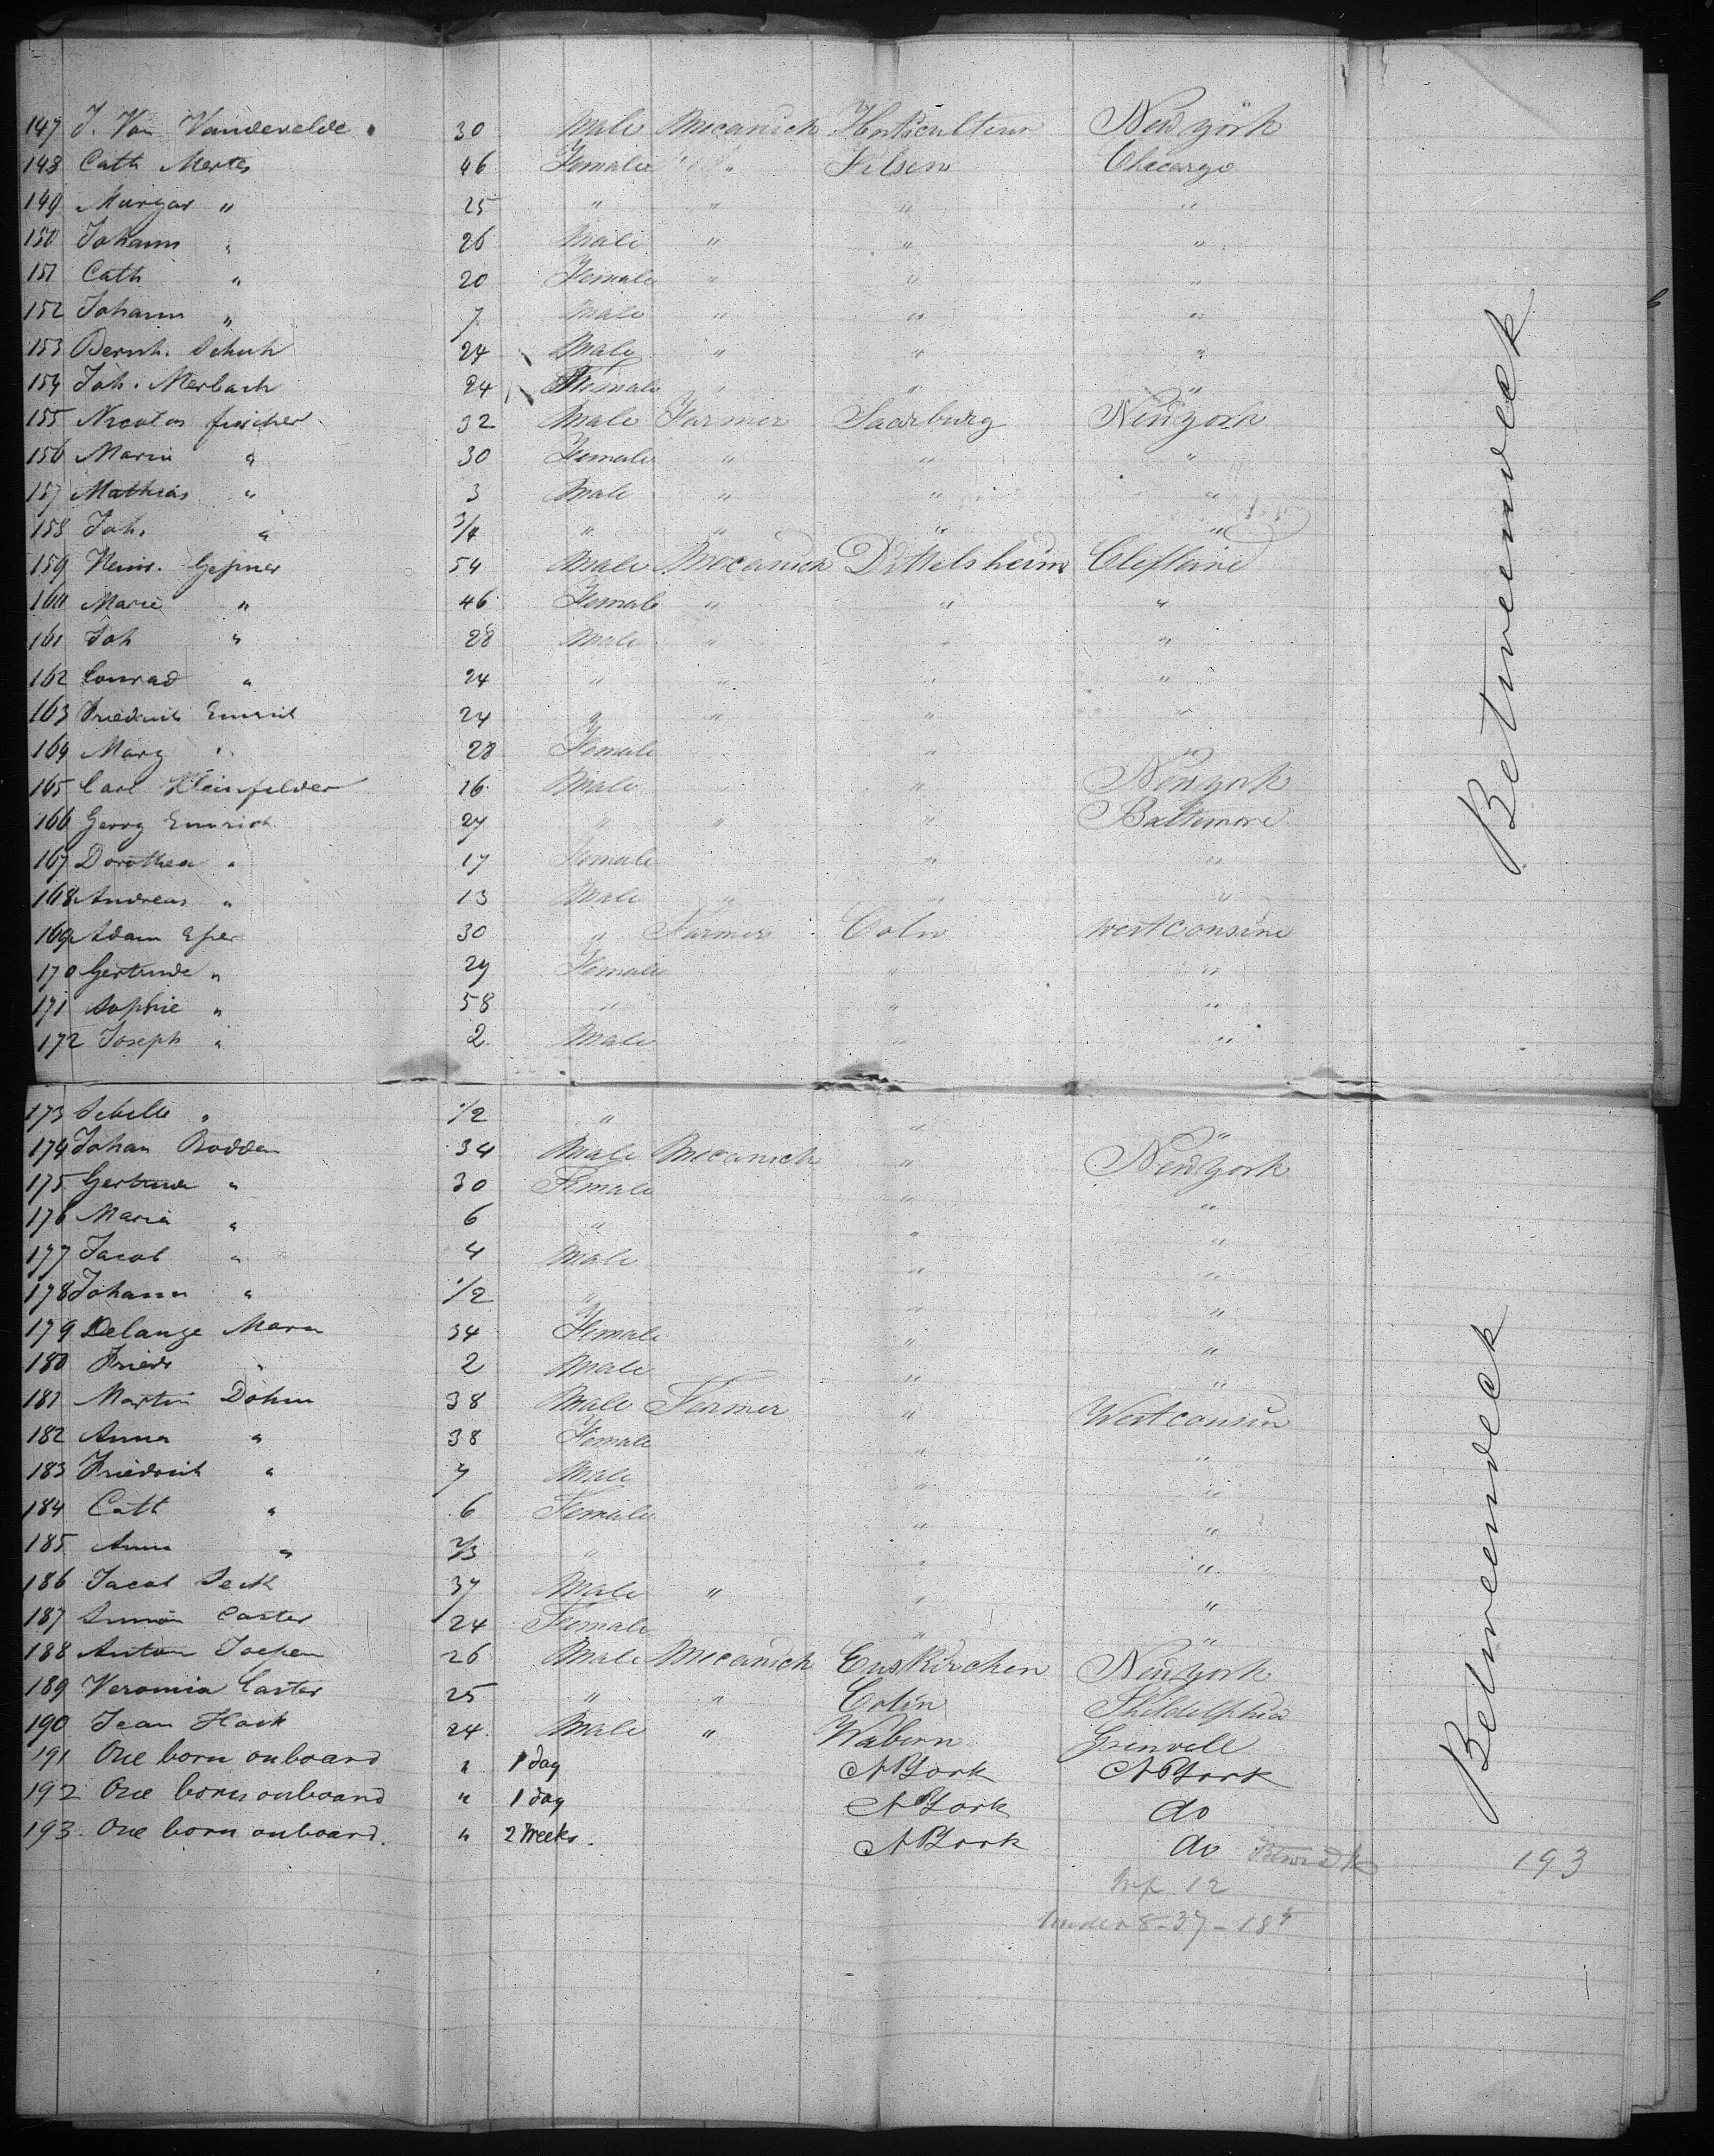 147 J. Van Vandevelde 30 Male Mecanich New york
148 Cath Mertes 46 Female " Chicargo
149 Margar " 25 " " " "
150 Johann " 26 Male " " "
151 Cath " 20 Female " " "
152 Johann " 7 Male " " "
153 Bernh. Schuh 24 Male " " "
154 Joh. Merbach 24 Female " " "
155 Nicolas fischer 32 Male Farmer Saarburg Newyork
156 Maria " 30 Female " " "
157 Mathias " 3 Male " " "
158 Joh. " 3/4 " " " "
159 Heinr. Geßner 54 Male Mecanich Dittelsheim
160 Marie " 46 Female " " "
161 Joh " 28 Male " " "
162 Conrad " 24 " " " "
163 Friedrich Emrich 24 " " " "
164 Marg " 28 Female " "
165 Carl Kleinfelder 16 Male " " Newyork
166 Georg Emrich 27 " " " Baltimore
167 Dorothea " 17 Female " "
168 Andreas " 13 Male " " "
169 Adam Eßer 30 " Farmer Coln westconsine
170 Gertrude " 29 Female " "
171 Sophie " 58 " " "
172 Joseph " 2 Male " "
173 Sibille " 1/2 " " "
174 Johan Bodden 34 Male Mecanich " New york
175 Gertrude " 30 Female " "
176 Maria " 6 " " "
177 Jacob " 4 Male " "
178 Johann " 1/2 " " "
179 Delange Maria 34 Female " "
180 Friedr " 2 Male " "
181 Martin Dohm 38 Male Farmer " Westconsin
182 Anna " 38 Female " "
183 Friedrich " 7 Male " "
184 Cath " 6 Female " "
185 Anna " 2/3 " " "
186 Jacob 37 Male " " "
187 Caster 24 Female " "
188 Anton 26 Male Mecanich Euskirchen New York
189 Veronica Caster 25 " " Coln
190 Jean Hack 24 Male " Wabern Grenvell
191 One born onboard " 1 day N York N York
192 One born onboard " 1 day N York do
193. One born onboard. " 2 Weeks. N York do
12
under 8-37-18
Betweendeck
Betweendeck
193